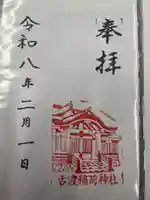 奉拝
令和八年二月一日
古渡稲荷神社